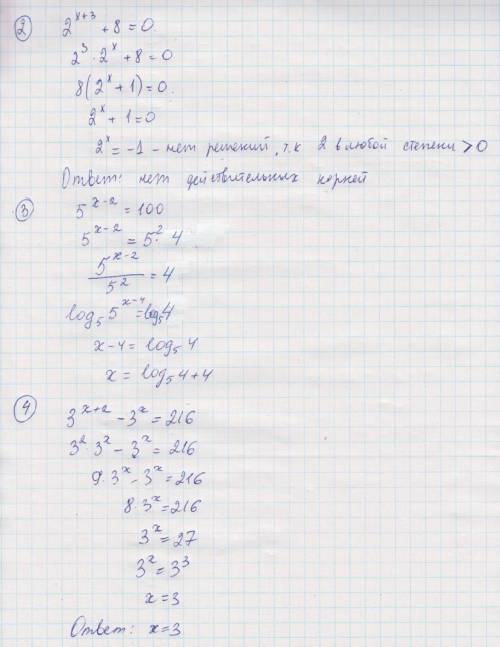 2 2^{x+3} + 8 = 0.
2^3 · 2^x + 8 = 0
8(2^x + 1) = 0.
2^x + 1 = 0
2^x = -1 - нет решений, т.к 2 в любой степени > 0
Ответ: нет действительных корней
3 5^{x-2} = 100
5^{x-2} = 5^2 · 4
5^{x-2}/5^2 = 4
log_5 5^{x-4} = log_5 4
x-4 = log_5 4
x = log_5 4 + 4
4 3^{x+2} - 3^x = 216
3^2 · 3^x - 3^x = 216
9 · 3^x - 3^x = 216
8 · 3^x = 216
3^x = 27
3^x = 3^3
x = 3
Ответ: x = 3